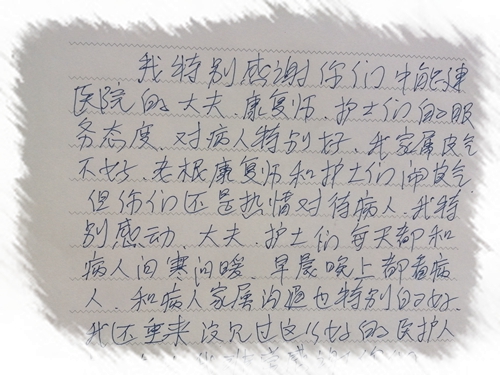 我特别感谢你们中能建
医院的大夫、康复师、护士们的服
务态度、对病人特别好、我家属皮气
不好、老根康复师和护士们闹皮气
但你们还是热情对待病人、我特
别感动、大夫、护士们每天都和
病人问寒问暖、早晨晚上都看病
人、和病人家属沟通也特别的好、
我还重来没见过这么好的医护人